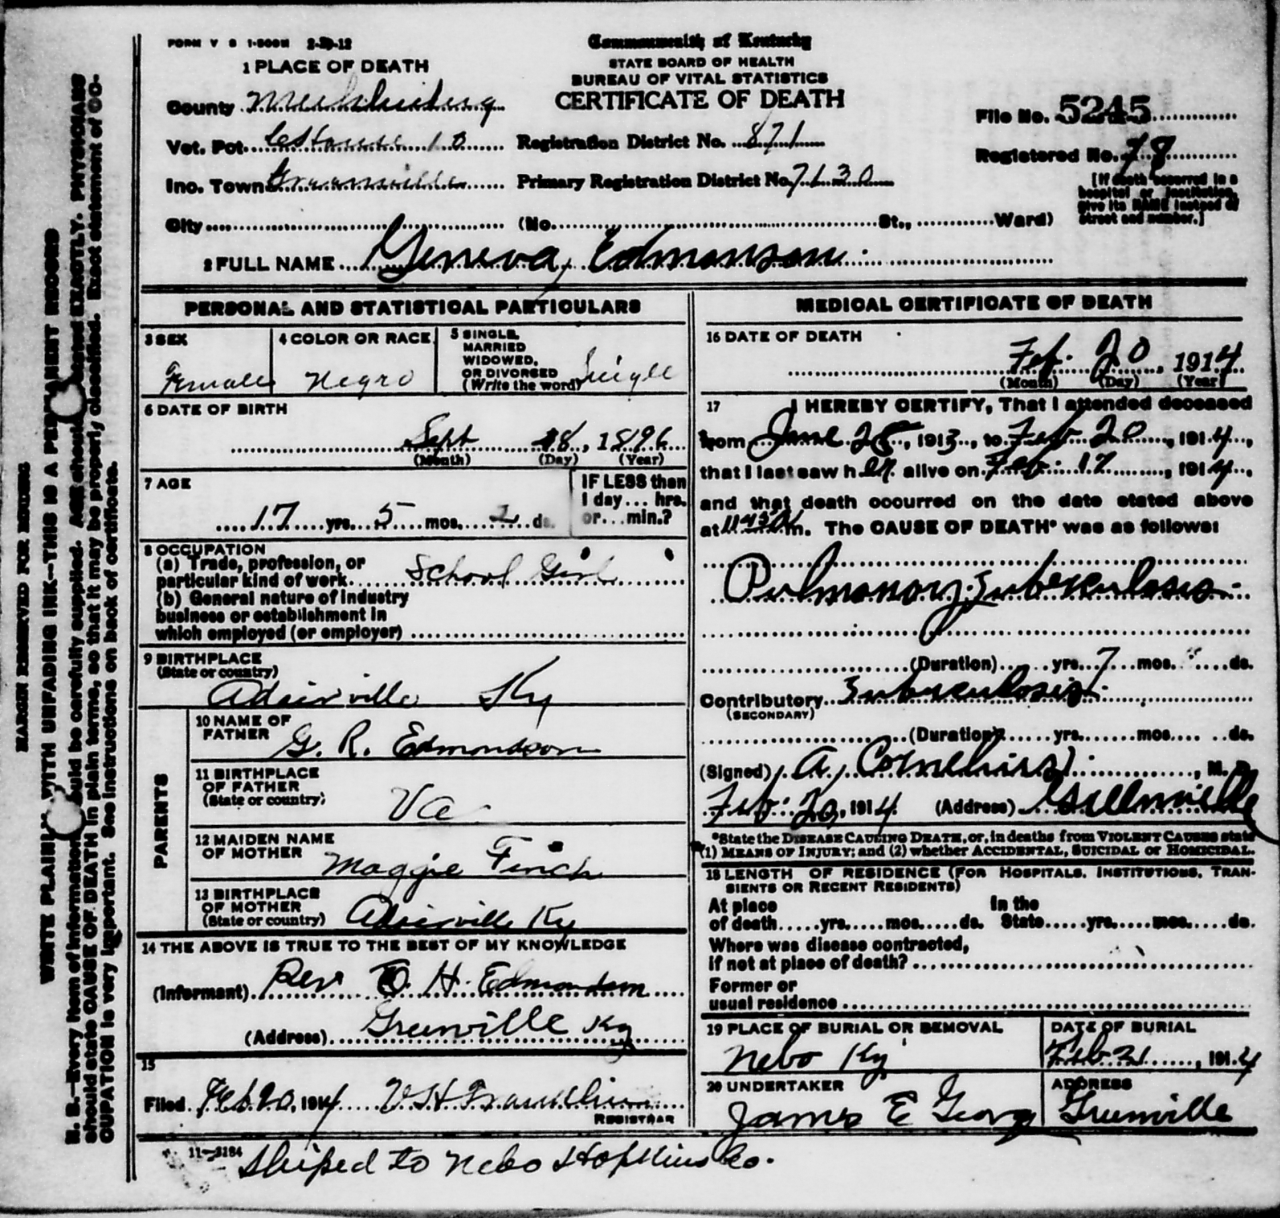 FORM V S 1-500M 2-29-12
Commonwealth of Kentucky
STATE BOARD OF HEALTH
BUREAU OF VITAL STATISTICS
CERTIFICATE OF DEATH
1 PLACE OF DEATH
County Muhlenberg
Vot. Pct. 10
Inc. Town Greenville
City (No. St., Ward)
Registration District No. 871
Primary Registration District No. 7130
File No. 5245
Registered No. 78
[If death occurred in a
hospital or institution,
give its NAME instead of
street and number.]
2 FULL NAME Geneva Edmonson
PERSONAL AND STATISTICAL PARTICULARS
3 SEX
Female
4 COLOR OR RACE
Negro
5 SINGLE,
MARRIED
WIDOWED,
OR DIVORCED
(Write the word) Single
6 DATE OF BIRTH
Sept 18, 1896
(Month) (Day) (Year)
7 AGE
17 yrs. 5 mos. 2 ds.
IF LESS than
1 day... hrs.
or... min.?
8 OCCUPATION
(a) Trade, profession, or
particular kind of work School Girl
(b) General nature of industry
business or establishment in
which employed (or employer)
9 BIRTHPLACE
(State or country)
Adairville Ky
PARENTS
10 NAME OF
FATHER
G. R. Edmondson
11 BIRTHPLACE
OF FATHER
(State or country)
Va
12 MAIDEN NAME
OF MOTHER
Maggie Finch
13 BIRTHPLACE
OF MOTHER
(State or country)
Adairville Ky
14 THE ABOVE IS TRUE TO THE BEST OF MY KNOWLEDGE
(Informant) Rev H. Edmondson
(Address) Greenville Ky
15
Filed Feb 20, 1914 V H
REGISTRAR
MEDICAL CERTIFICATE OF DEATH
16 DATE OF DEATH
Feb. 20, 1914
(Month) (Day) (Year)
17 I HEREBY CERTIFY, That I attended deceased
from June 25, 1913, to Feb 20, 1914,
that I last saw her alive on Feb. 17, 1914,
and that death occurred on the date stated above
at m. The CAUSE OF DEATH* was as follows:
Pulmonary Tuberculosis
(Duration) yrs. 7 mos. ds.
Contributory Tuberculosis
(SECONDARY)
(Duration) yrs. mos. ds.
(Signed) A. M. D.
Feb. 20, 1914 (Address) Greenville
*State the DISEASE CAUSING DEATH, or, in deaths from VIOLENT CAUSES state
(1) MEANS OF INJURY; and (2) whether ACCIDENTAL, SUICIDAL or HOMICIDAL.
18 LENGTH OF RESIDENCE (FOR HOSPITALS, INSTITUTIONS, TRAN-
SIENTS OR RECENT RESIDENTS)
At place In the
of death yrs. mos. ds. State yrs. mos. ds.
Where was disease contracted,
if not at place of death?
Former or
usual residence
19 PLACE OF BURIAL OR REMOVAL
Nebo Ky
DATE OF BURIAL
Feb 21, 1914
20 UNDERTAKER
James E
ADDRESS
Greenville
11-3184
Shiped to Nebo Hopkins Co.
MARGIN RESERVED FOR BINDING
WRITE PLAINLY WITH UNFADING INK—THIS IS A PERMANENT RECORD
N. B.—Every item of information should be carefully supplied. AGE should be stated EXACTLY. PHYSICIANS
should state CAUSE OF DEATH in plain terms, so that it may be properly classified. Exact statement of OC-
CUPATION is very important. See instructions on back of certificate.